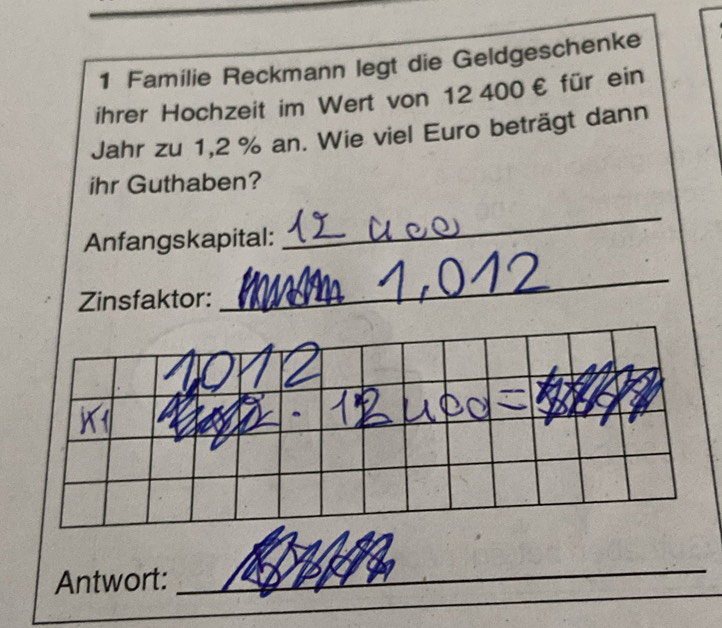 1 Familie Reckmann legt die Geldgeschenke
ihrer Hochzeit im Wert von 12 400 € für ein
Jahr zu 1,2 % an. Wie viel Euro beträgt dann
ihr Guthaben?
Anfangskapital: 12 400
Zinsfaktor: 1,012
1,012
K1 · 12 400 =
Antwort: